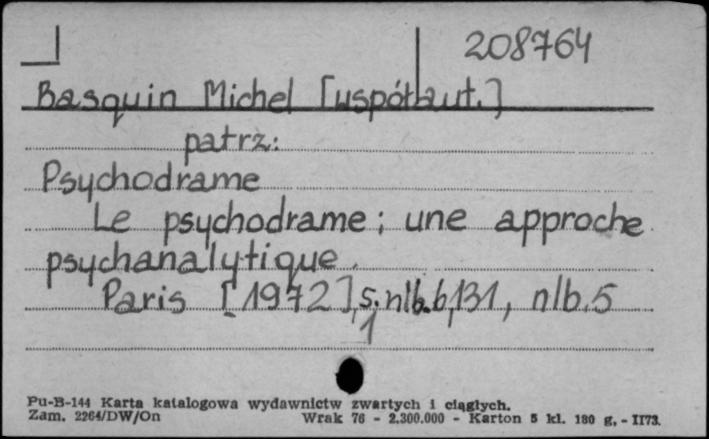 208764
Basquin Michel [współaut.]
patrz:
Psychodrame
Le psychodrame; une approche
psychanalytique.
Paris [1972], s. nlb. 6, 131, nlb. 5
1
Pu-B-144 Karta katalogowa wydawnictw zwartych i ciągłych.
Zam. 2264/DW/On Wrak 76 - 2.300.000 - Karton 5 kl. 180 g. - II73.